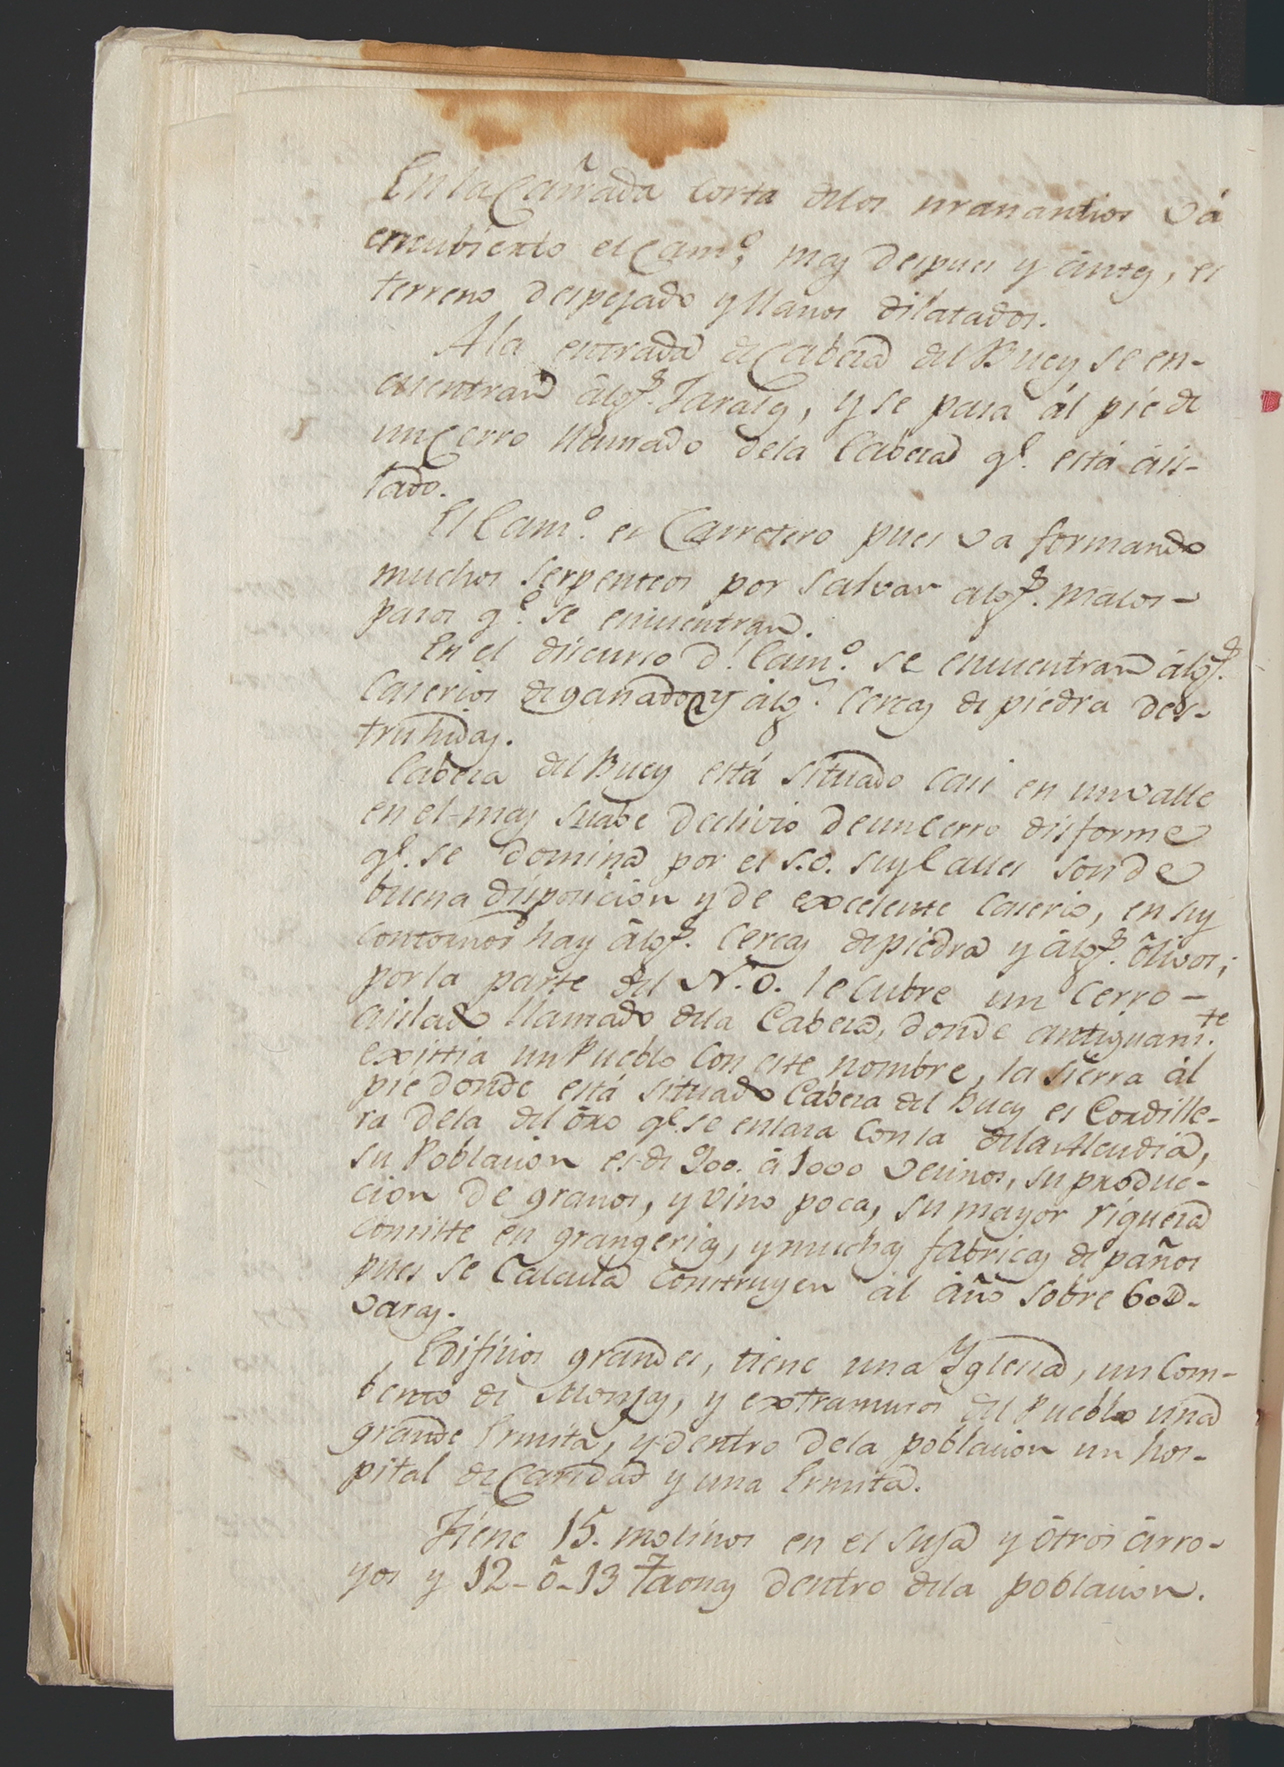 En la Cañada corta de los manantios vá
encubierto el Cam.º mas despues y ántes, es
terreno despejado y llanos dilatados.
A la entrada de Cabeza del Buey se en-
cuentran álg.s Jarales, y se pasa ál pié de
un Cerro llamado de la Cabeza q.e está áis-
lado.
El Cam.º es Carretero pues va formando
muchos serpenteos por salvar alg.s malos-
pasos q.e se encuentran.
En el discurso d.l Cam.º se encuentran álg.s
Caserios de ganados y álg.s Cercas de piedra des-
truhidas.
Cabeza del Buey está situado casi en un valle
en el mas suabe declivio de un Cerro disforme
q.e se domina por el S.O. sus Calles son de
buena disposicion y de excelente Caserio, en sus
contornos hay álg.s Cercas de piedra y álg.s ólivos,
por la parte del N.O. le cubre un Cerro-
aislado llamado de la Cabeza, donde antiguam.te
existia un Pueblo con este nombre, la sierra ál
pie donde está situado Cabeza del Buey es Cordille-
ra de la del óro q.e se enlaza con la de la Alcudia,
su Poblacion es de 900. á 1000 vecinos, su produc-
cion de granos, y vino poca, su mayor riqueza
consiste en grangerias, y muchas fabricas de paños
pues se calcula construyen al año sobre 60D-
varas.
Edificios grandes, tiene una Yglesia, un Com-
bento de Monjas, y extramuros del Pueblo una
grande Ermita, y dentro de la poblacion un hos-
pital de Caridad y una Ermita.
Tiene 15. molinos en el Suja y ótros árro-
yos y 12-ó-13 Taonas dentro de la poblacion.